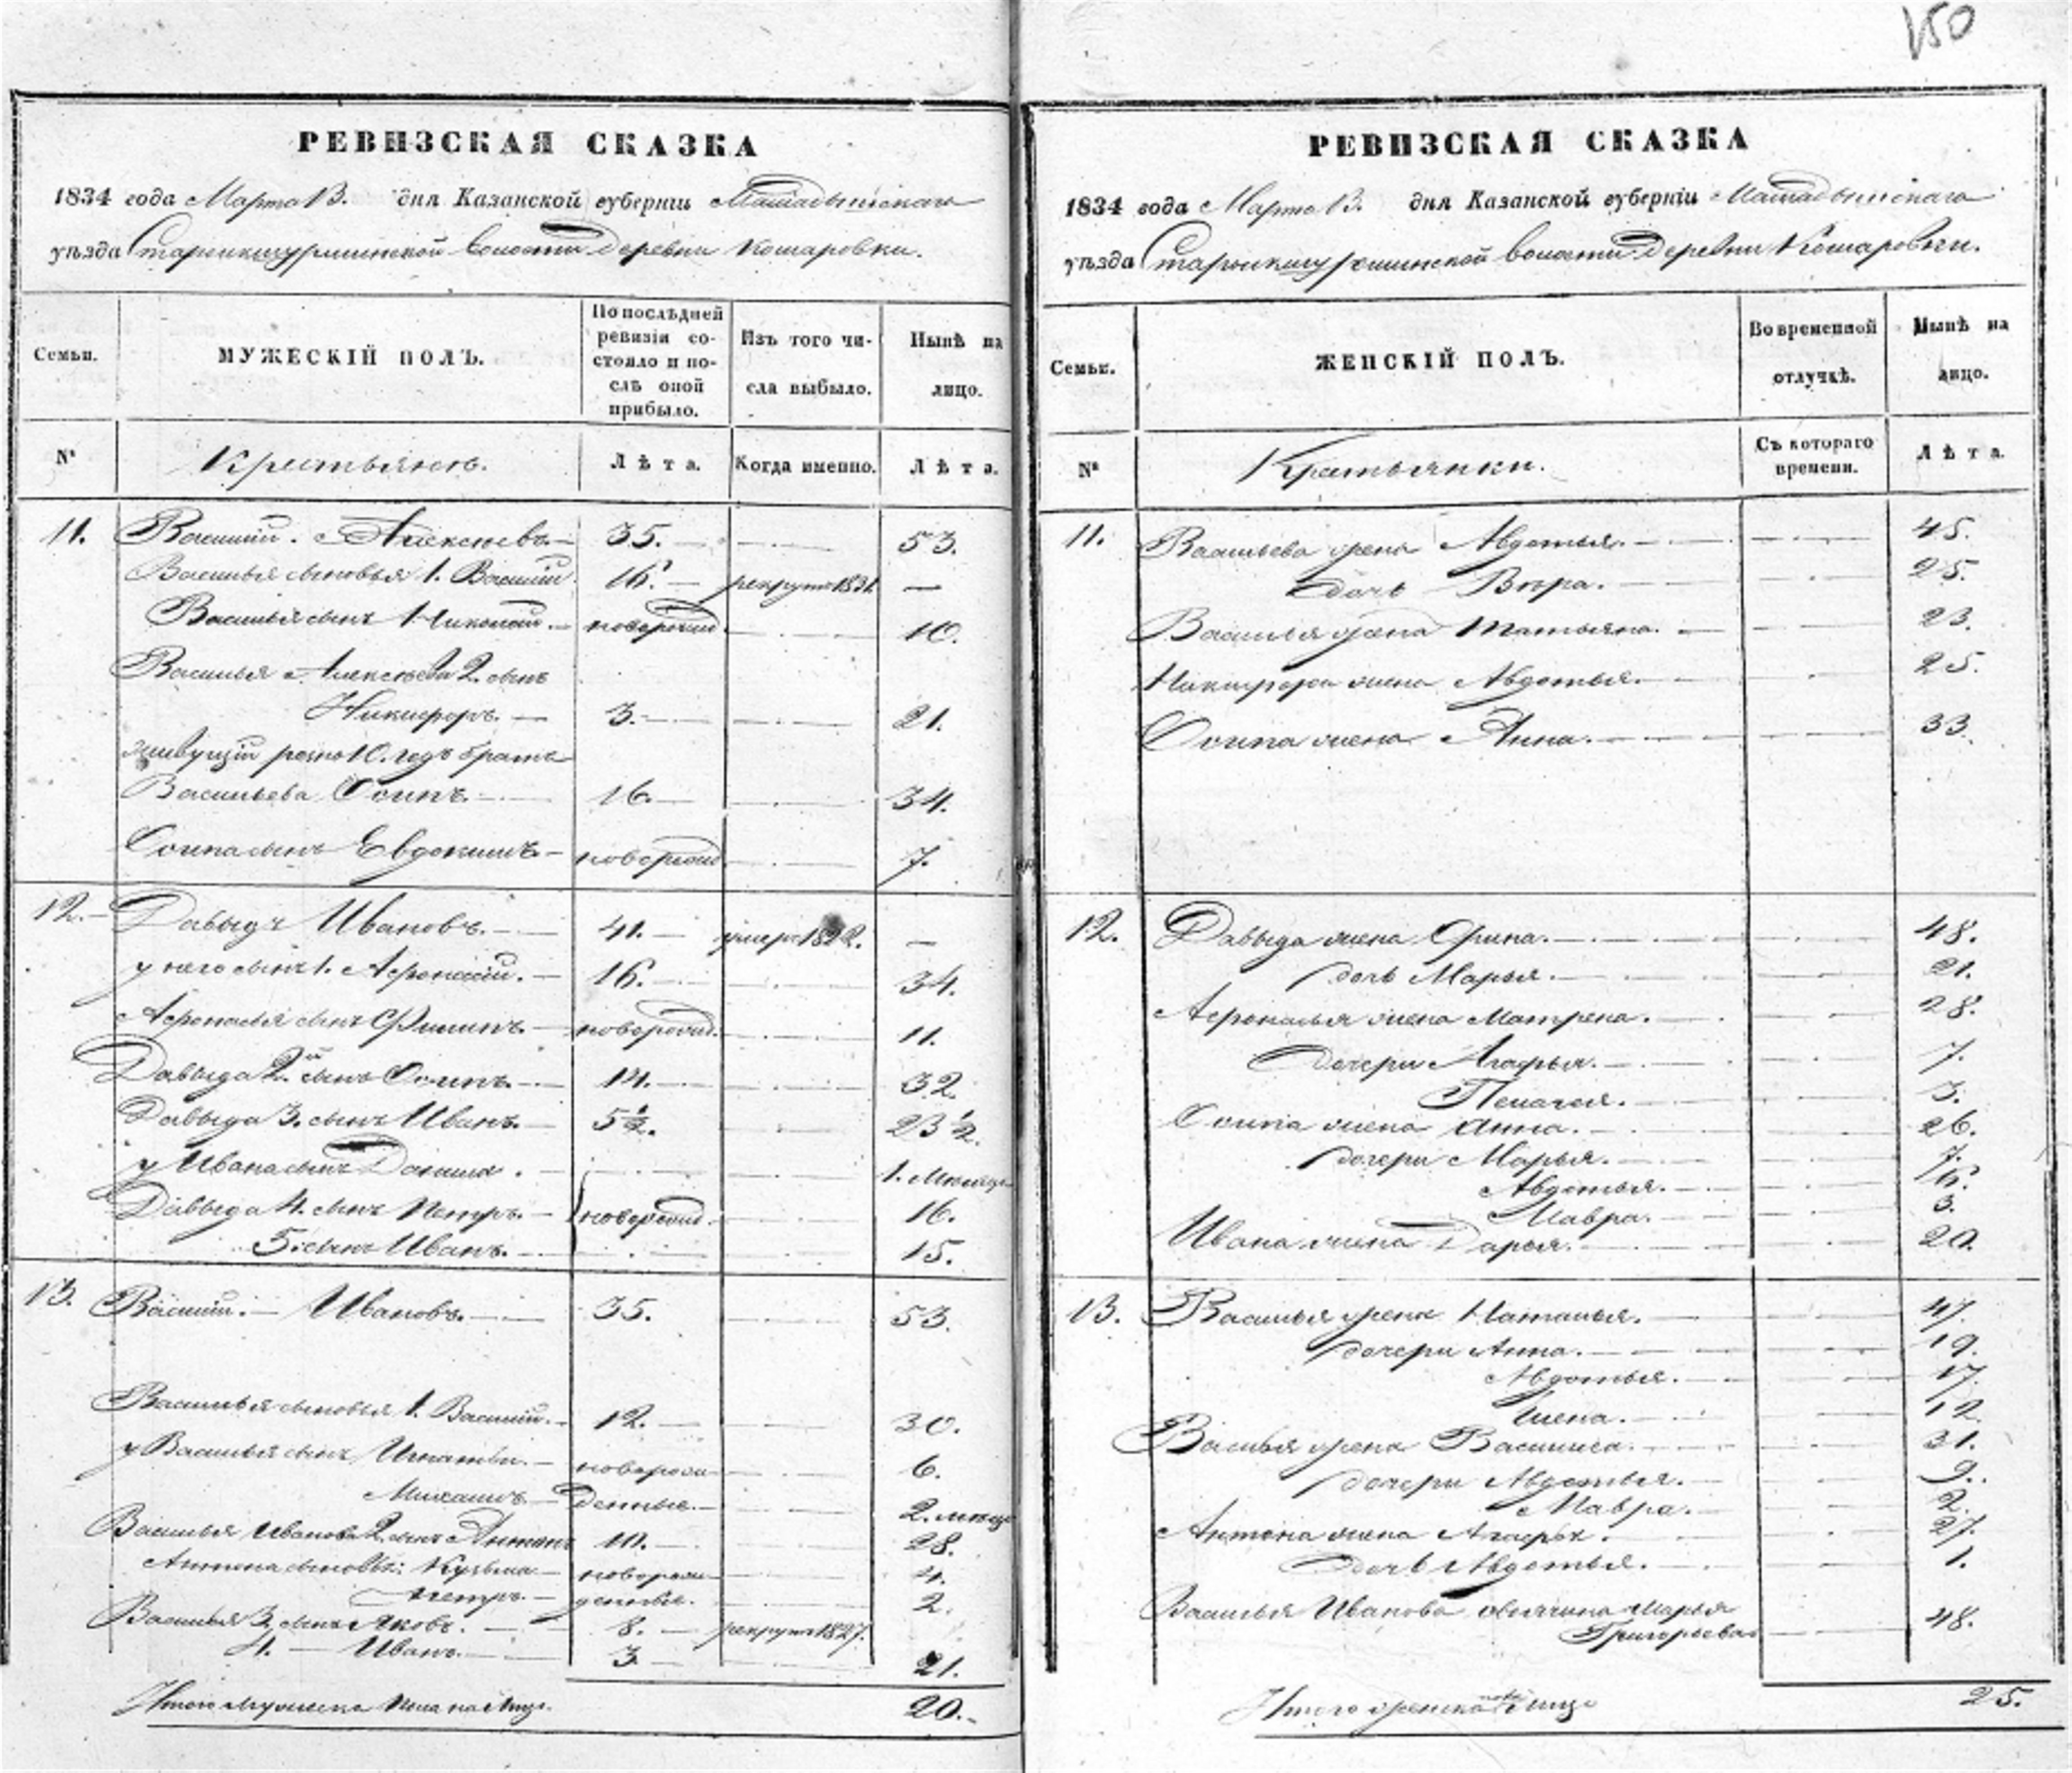 150
РЕВИЗСКАЯ СКАЗКА
1834 года Марта 13. дня Казанской губерніи Мамадышскаго
уѣзда волости деревни Комаровки.
Семьи.
МУЖЕСКІЙ ПОЛЪ.
По послѣдней ревизіи со-
стояло и по-
слѣ оной
прибыло.
Изъ того чи-
сла выбыло.
Нынѣ на
лицо.
№
Крестьяне.
Лѣта.
Когда именно.
Лѣта.
11. Василий Алексѣевъ 35. 53.
Василья сыновья 1. Василий 16. рекрутъ 1831 —
Василья сынъ Николай новорожд. 10.
Василья Алексѣева 2. сынъ
Никифоръ. 3. 21.
живущій розно 10. годъ братъ
Васильева Осипъ. 16. 34.
Осипа сынъ Евдокимъ новорожд. 7.
12. Давыдъ Ивановъ. 41. умеръ 1822. —
у него сынъ 1. Афонасий. 16. 34.
Афонасья сынъ Филипъ. новорожд. 11.
Давыда 2й сынъ Осипъ. 14. 32.
Давыда 3. сынъ Иванъ. 5 1/2. 23 1/2.
у Ивана сынъ Данила. 1. мѣсяцъ
Давыда 4. сынъ Петръ. новорожд. 16.
5. сынъ Иванъ. 15.
13. Василий. Ивановъ. 35. 53.
Василья сыновья 1. Василий. 12. 30.
у Василья сынъ Игнатий новорож- 6.
Михаилъ денные. 2. мѣсяц
Василья Иванова 2. сынъ Антонъ 10. 28.
Антона сыновья: Кузьма новорож- 4.
Петръ. денные. 2.
Василья 3. сынъ Яковъ. 8. рекрутъ 1827.
4. — Иванъ. 3 21.
Итого мужеска пола на лицо. 20.
РЕВИЗСКАЯ СКАЗКА
1834 года Марта 13. дня Казанской губерніи Мамадышскаго
уѣзда волости деревни Комаровки.
Семьи.
ЖЕНСКІЙ ПОЛЪ.
Во временной
отлучкѣ.
Нынѣ на
лицо.
№
Крестьянки.
Съ котораго
времени.
Лѣта.
11. Васильева жена Авдотья. 45.
дочь Вѣра. 25.
Василья жена Татьяна. 23.
Никифора жена Авдотья. 25.
Осипа жена Анна. 33.
12. Давыда жена Орина. 48.
дочь Марья. 21.
Афонасья жена Матрена. 28.
дочери Агафья. 7.
Пелагея. 3.
Осипа жена Анна. 26.
дочери Марья. 7.
Авдотья. 6.
Мавра. 3.
Ивана жена Дарья. 20.
13. Василья жена Наталья. 47.
дочери Анна. 19.
Авдотья. 17.
12
Василья жена Василиса. 31.
дочери Авдотья. 9.
Мавра. 2.
Антона жена 27.
дочь Авдотья. 1.
Василья Иванова Марья
Григорьева 48.
Итого женска пола на лицо 25.